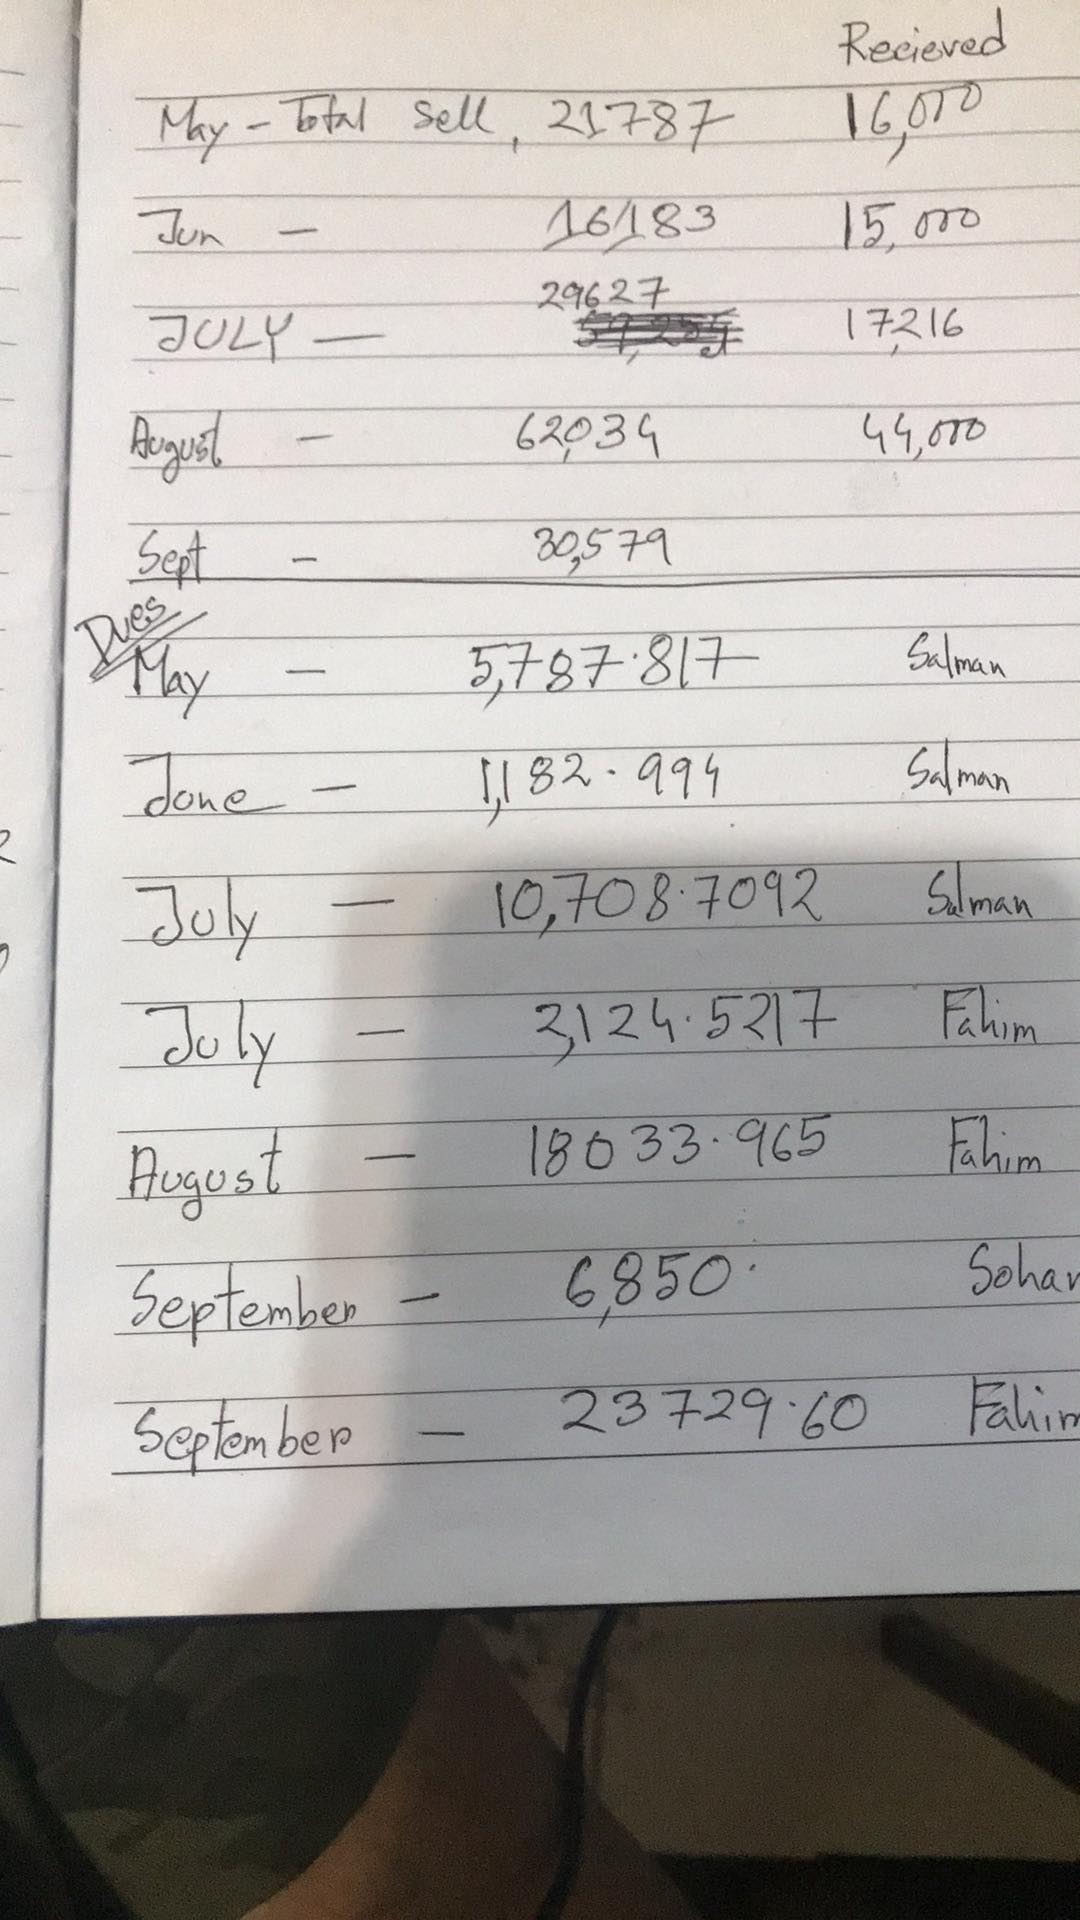 Recieved
May - Total Sell, 21787 16,000
Jun - 16183 15,000
29627
JULY - 17,216
August - 62,034 44,000
Sept - 30,579
Dues
May - 5,787.817 Salman
June - 1,182.994 Salman
July - 10,708.7092 Salman
July - 2,124.5217 Fahim
August - 18033.965 Fahim
September - 6,850. Sohan
September - 23729.60 Fahim